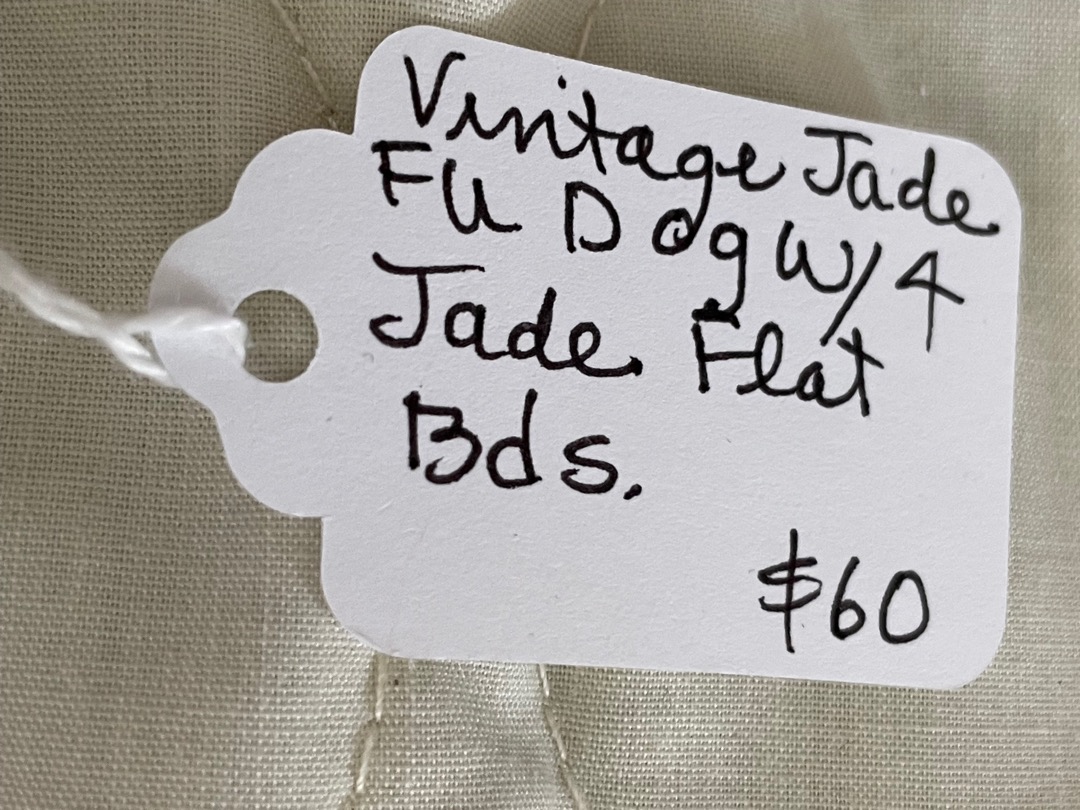 Vintage Jade
Fu Dog W/4
Jade Flat
Bds.
$60